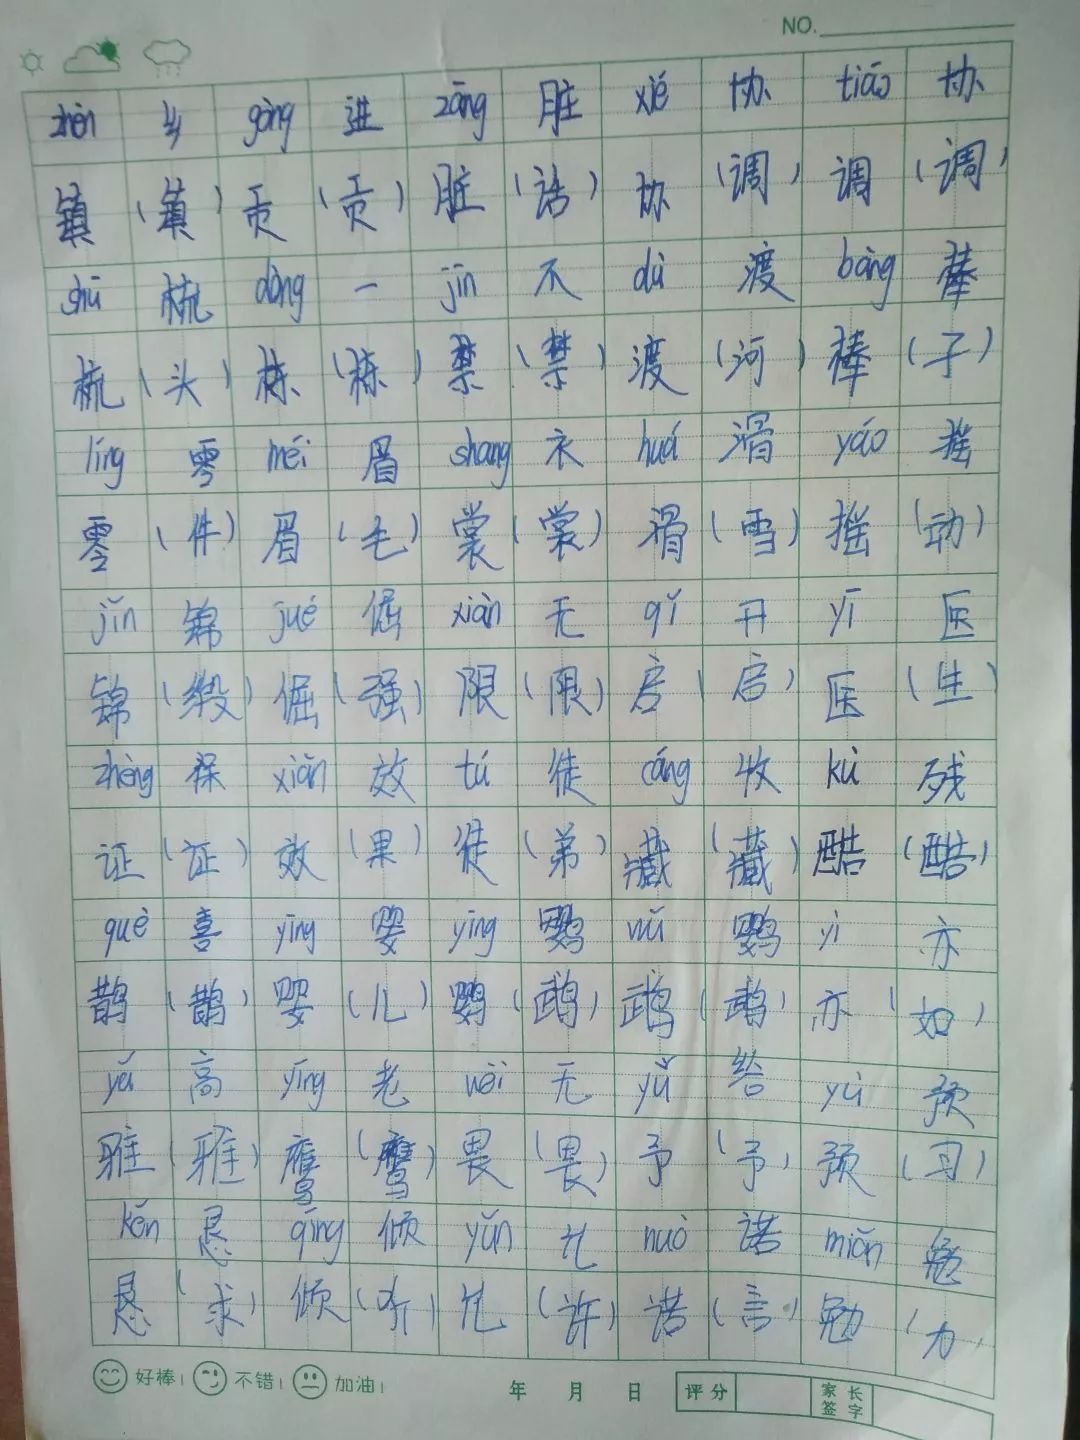 NO.
zhèn 乡 gòng 进 zāng 脏 xié 协 tiáo 协
镇 (镇) 贡 (贡) 脏 (话) 协 (调) 调 (调)
shū 梳 dòng 一 jīn 不 dù 渡 bàng 棒
梳 (头) 栋 (栋) 禁 (禁) 渡 (河) 棒 (子)
líng 零 méi 眉 shang 衣 huá 滑 yáo 摇
零 (件) 眉 (毛) 裳 (裳) 滑 (雪) 摇 (动)
jǐn 锦 jué 倔 xiàn 无 qǐ 开 yī 医
锦 (缎) 倔 (强) 限 (限) 启 (启) 医 (生)
zhèng 保 xiào 效 tú 徒 cáng 收 kù 残
证 (证) 效 (果) 徒 (弟) 藏 (藏) 酷 (酷)
què 喜 yīng 婴 yīng 鹦 wǔ 鹦 yì 亦
鹊 (鹊) 婴 (儿) 鹦 (鹉) 鹉 (鹉) 亦 (如)
yǎ 高 yīng 老 wèi 无 yǔ 给 yù 预
雅 (雅) 鹰 (鹰) 畏 (畏) 予 (予) 预 (习)
kěn 恳 qīng 倾 yǔn 允 nuò 诺 miǎn 勉
恳 (求) 倾 (听) 允 (许) 诺 (言) 勉 (力)
好棒! 不错! 加油! 年 月 日 评分 家长签字